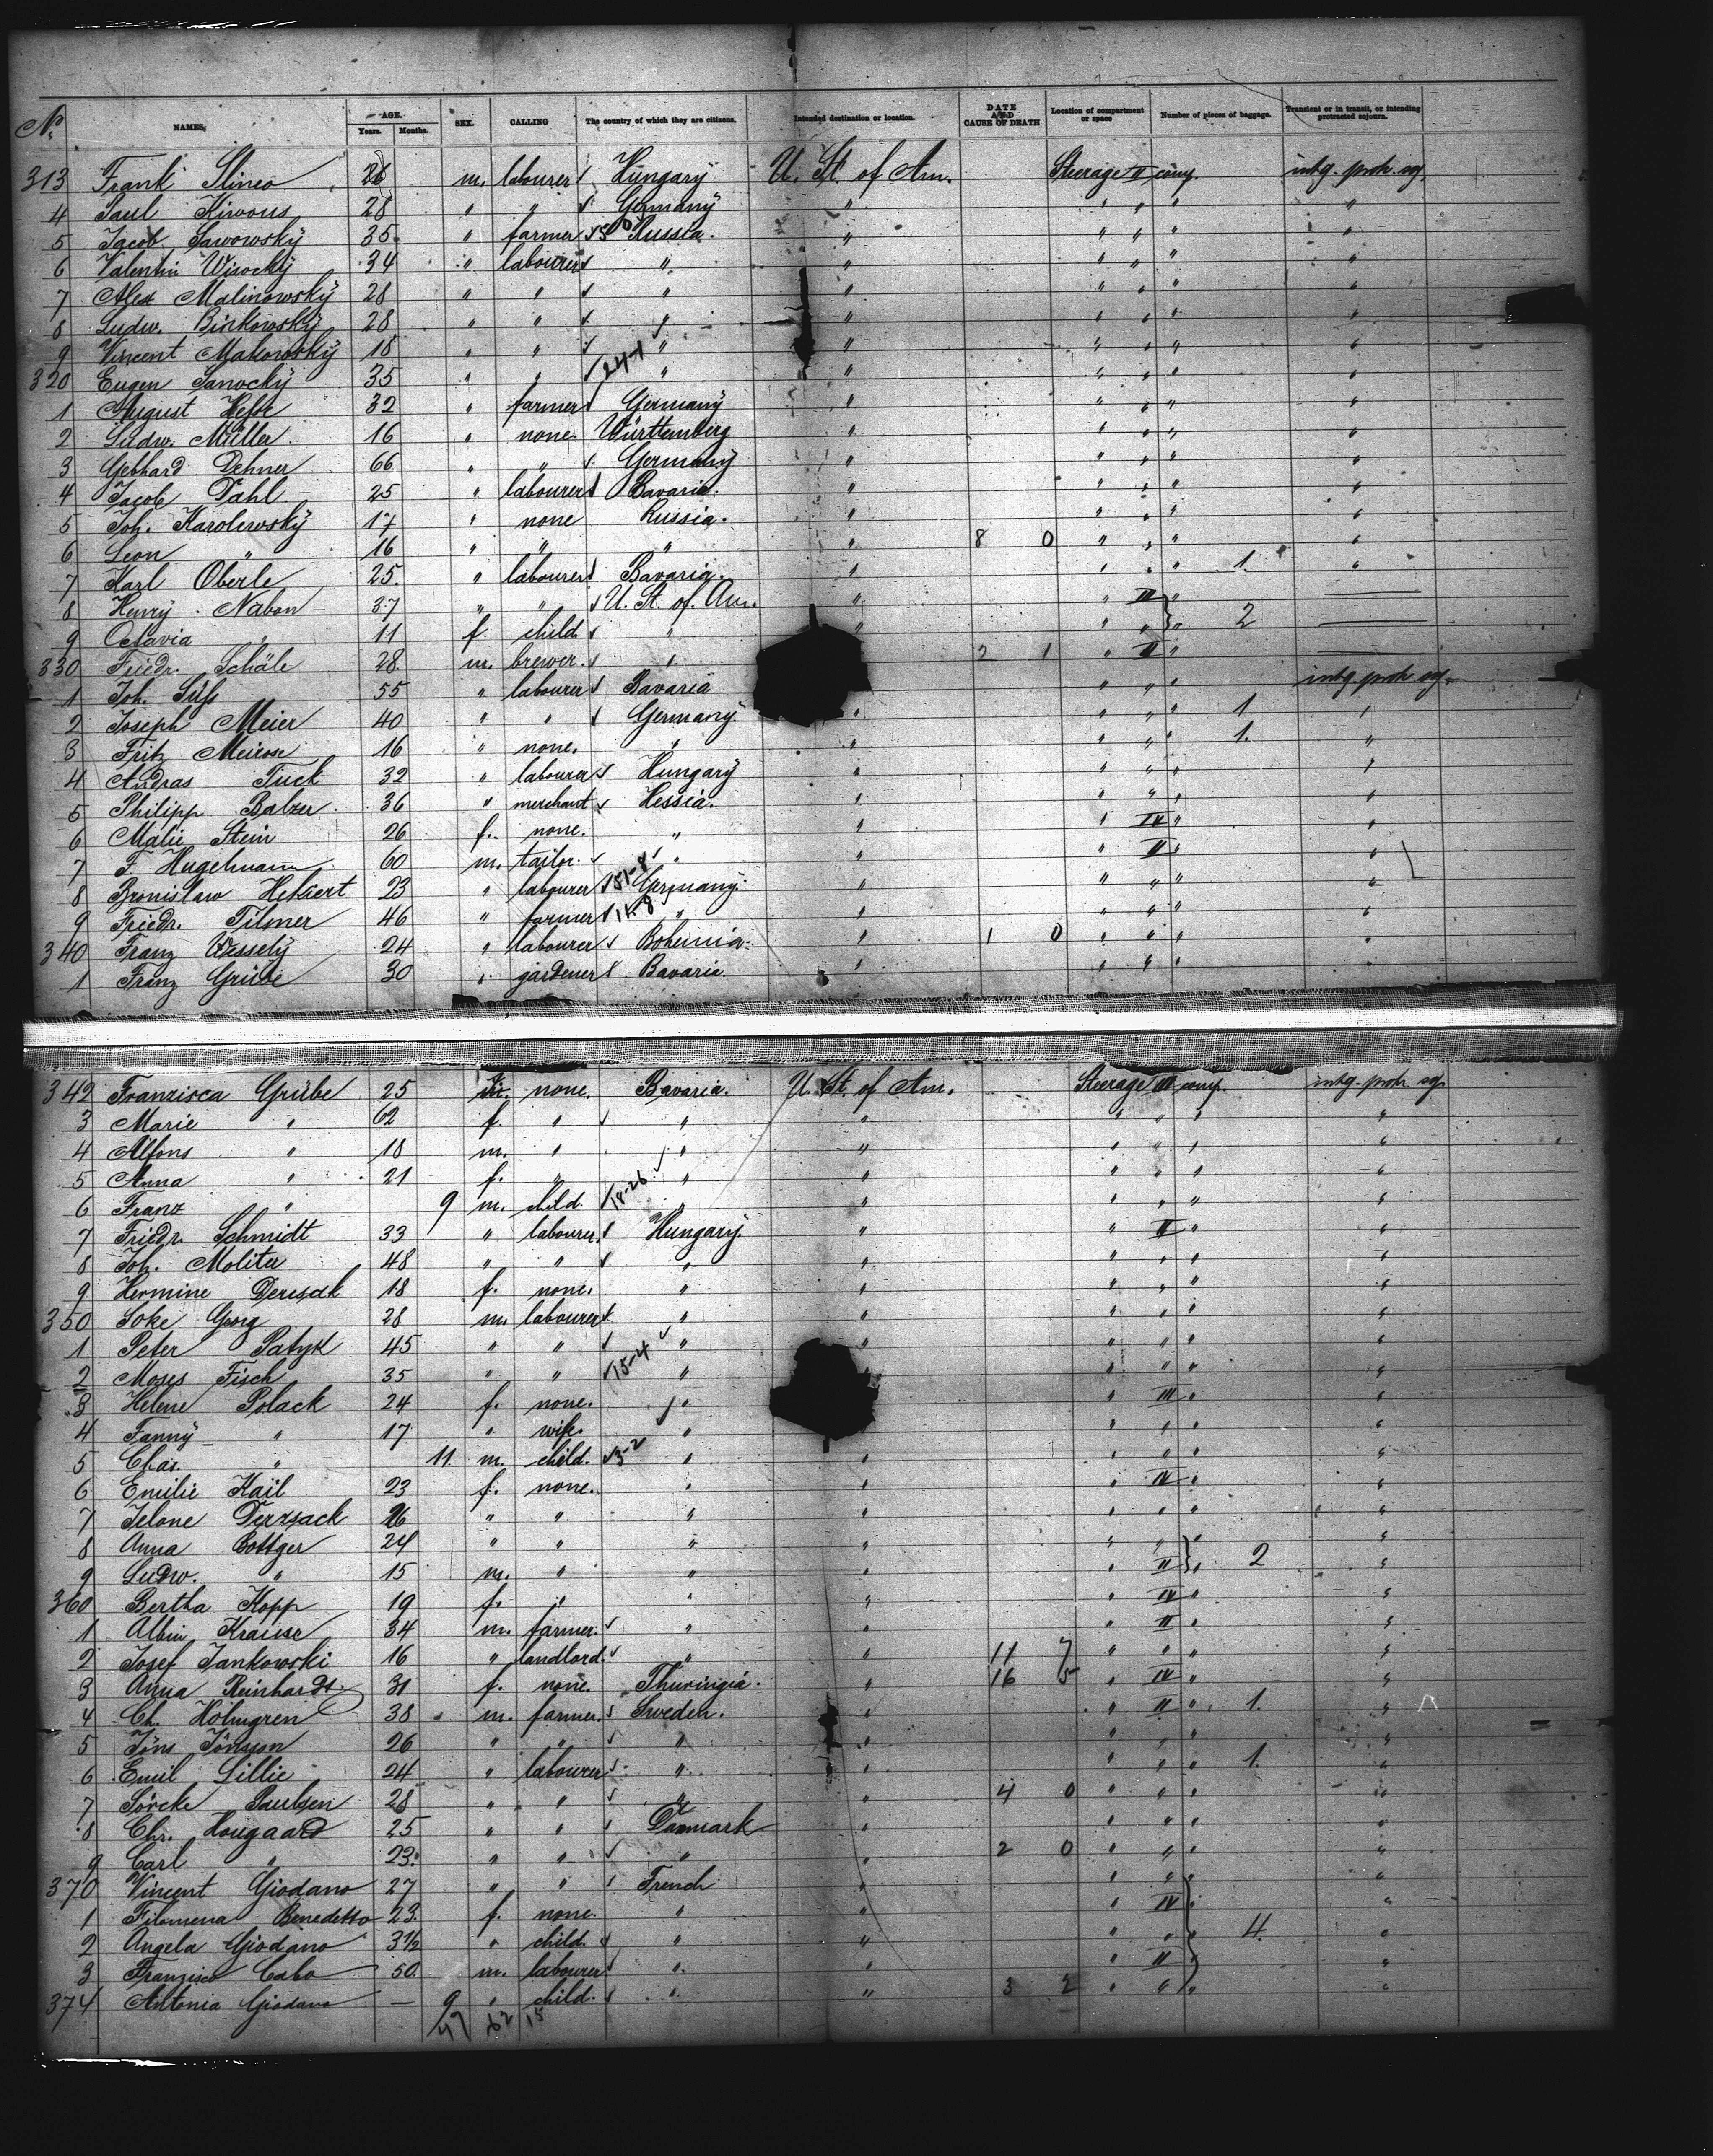 No. NAMES, AGE. Years. Months. SEX. CALLING The country of which they are citizens. Intended destination or location. DATE AND CAUSE OF DEATH Location of compartment or space Number of pieces of baggage. Transient or in transit, or intending protracted sojourn.
313 Frank Slinco 26 m. labourer Hungary U. St. of Am. Steerage II comp. intg. protr. soj.
4 Paul Kiwous 28 " " Germany " " " " "
5 Jacob Sawowsky 35 " farmer Russia. " " " " "
6 Valentin Wisocky 34 " labourer " " " " " "
7 Alex Malinowsky 28 " " " " " " " "
8 Ludw. Binkowsky 28 " " " " " " " "
9 Vincent Makowsky 18 " " " " " " " "
320 Eugen Sanocky 35 " " 24-1 " " " " " "
1 August Hesse 32 " farmer Germany " " " " "
2 Ludw. Müller 16 " none. Württemberg " " " " "
3 Gebhard Dehner 66 " " Germany " " " " "
4 Jacob Dahl 25 " labourer Bavaria. " " " " "
5 Joh. Karolewsky 17 " none Russia. " " " " "
6 Leon " 16 " " " " 8 0 " " " "
7 Karl Oberle 25. " labourer Bavaria. " " " " 1. "
8 Henry Nabon 37 " " U. St. of Am. " " III "
9 Octavia " 11 f child " " " " " 2
330 Friedr. Schäle 28 m. brewer. " " 2 1 " II "
1 Joh. Süss 55 " labourer Bavaria " " " " intg. protr. soj.
2 Joseph Meier 40 " " Germany " " " " 1 "
3 Fritz Meirose 16 " none. " " " " " 1. "
4 Andras Tuck 32 " labourer Hungary " " " " "
5 Philipp Balzer 36 " merchant Hessia. " " " " "
6 Malie Stein 26 f. none. " " " IV " "
7 F. Hugelmann 60 m. tailor. " " " II " "
8 Bronislaw Hekert 23 " labourer 51-8 Germany. " " " " "
9 Friedr. Tilmer 46 " farmer 14-8 " " " " " "
340 Franz Wessely 24 " labourer Bohemia. " 1 0 " " " "
1 Franz Grübe 30 " gardener Bavaria. " " " " "
342 Franzisca Grübe 25 none. Bavaria. U. St. of Am. Steerage III comp. intg. protr. soj.
3 Marie " 62 f. " " " " " " "
4 Alfons " 18 m. " " " " " " "
5 Anna " 21 f. " " " " " " "
6 Franz " 9 m. child. 18-26 " " " " " "
7 Friedr. Schmidt 33 " labourer. Hungary. " " II " "
8 Joh. Molitu 48 " " " " " " " "
9 Hermine Deresak 18 f. none. " " " " " "
350 Soke Georg 28 m. labourer " " " " " "
1 Peter Patyk 45 " " " " " " " "
2 Moses Fisch 35 " " 15-4 " " " " " "
3 Helene Polack 24 f. none. " " " III " "
4 Fanny " 17 " wife. " " " " " "
5 Chas. " 11. m. child. 3-2 " " " " " "
6 Emilie Kail 23 f. none. " " " IV " "
7 Jelone Derzsack 26 " " " " " " " "
8 Anna Bottger 24 " " " " " " " "
9 Ludw. " 15 m. " " " " II " 2 "
360 Bertha Kopp 19 f. " " " " IV " "
1 Albin Krause 34 m. farmer. " " " II " "
2 Josef Jankowski 16 " landlord. " " 11 7 " " " "
3 Anna Reinhardt. 31 f. none. Thuringia. " 16 5 " IV " "
4 Ch. Holmgren 38 m. farmer. Sweden. " " II " 1. "
5 Jöns Jönsson 26 " " " " " " " "
6 Emil Lillie 24 " labourer " " " " " 1. "
7 Sörcke Paulsen 28 " " " " 4 0 " " " "
8 Chr. Hougaard 25 " " Danmark " " " " "
9 Carl " 23. " " " " 2 0 " " " "
370 Vincent Giodano 27 " " French " " " " "
1 Filomena Benedetto 23. f. none. " " " IV " "
2 Angela Giodano 3½ " child " " " " " 4. "
3 Franzisco Cabo 50. m. labourer " " " II " "
374 Antonia Giodano — 9 " child. " " 3 2 " " " "
47 62 15